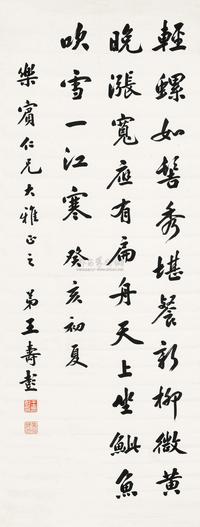 輕螺如髻秀堪餐新柳微黄
晚漲寬應有扁舟天上坐鮆魚
吹雪一江寒 癸亥初夏
樂賓仁兄大雅正之 弟王壽彭